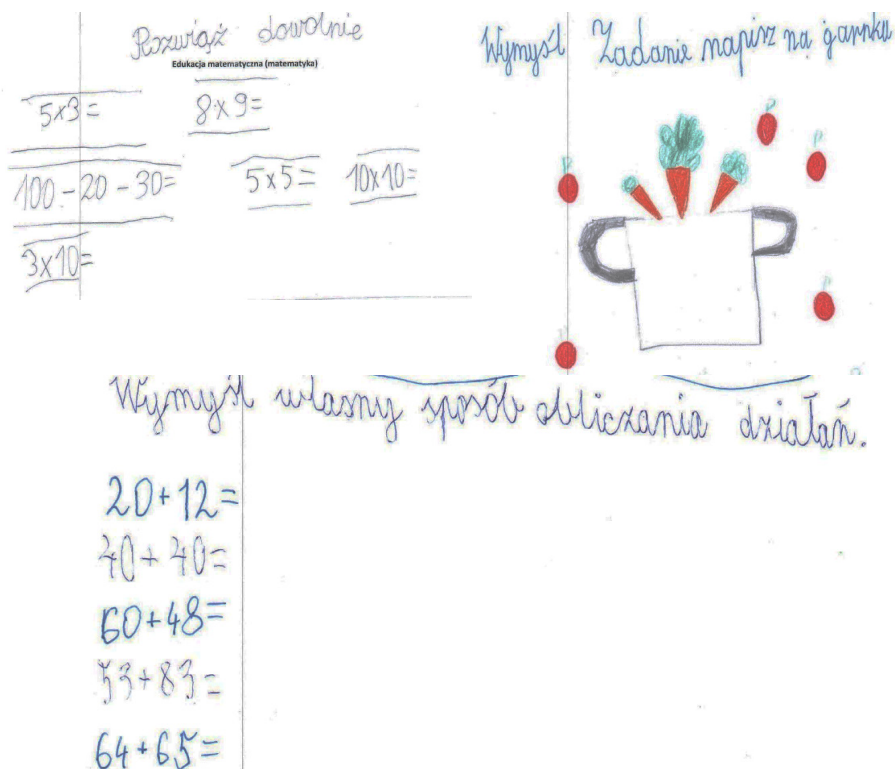 Rozwiąż dowolnie
Edukacja matematyczna (matematyka)
5x3=
8x9=
100-20-30=
5x5=
10x10=
3x10=
Wymyśl Zadanie napisz na garnku
Wymyśl własny sposób obliczania działań.
20+12=
40+40=
60+48=
53+83=
64+65=